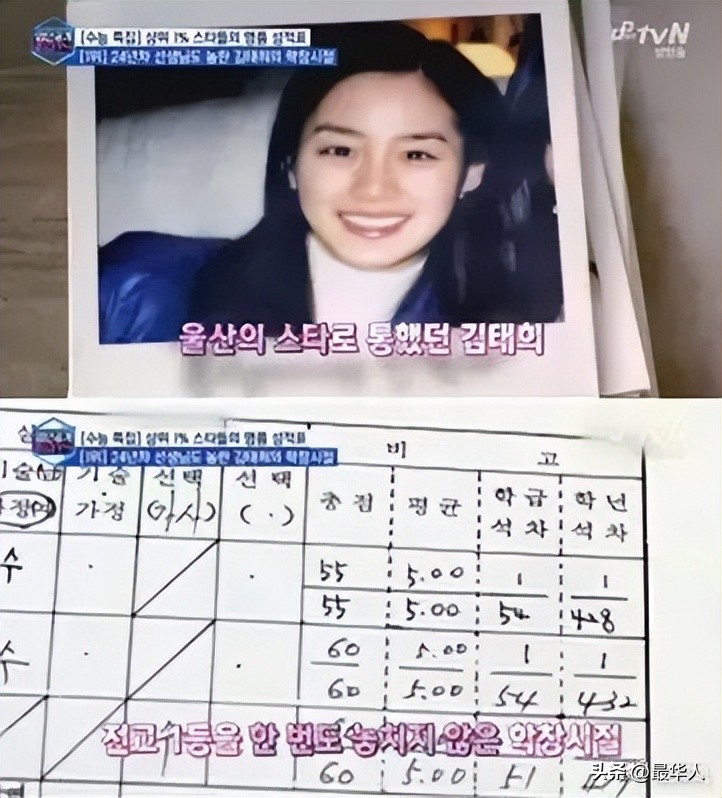 [수능 특집] 상위 1% 스타들의 명품 성적표
[1위] 24년차 선생님도 놀란 김태희의 학창시절
tvN
방송중
울산의 스타로 통했던 김태희
[수능 특집] 상위 1% 스타들의 명품 성적표
[1위] 24년차 선생님도 놀란 김태희의 학창시절
비 고
기술 선택 선택 총점 평균 학급 학년
가정 (가사) ( . ) 석차 석차
수 55 5.00 1 1
55 5.00 54 428
수 60 5.00 1 1
60 5.00 54 432
전교 1등을 한 번도 놓치지 않은 학창시절
60 5.00 51
头条 @最华人